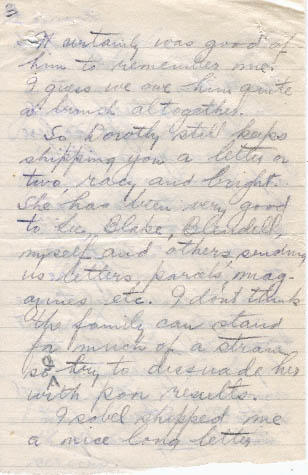 3
It certainly was good of
him to remember me.
I guess we owe him quite
a bunch altogether.
So Dorothy still keeps
shipping you a letter or
two, racy and bright.
She has been very good
to Blake, Blendell,
myself and others, sending
us letters, parcels, mag-
azines etc. I don't think
the family can stand
for much of a strain
so try to dissuade her
with poor results.
Isobel shipped me
a nice long letter